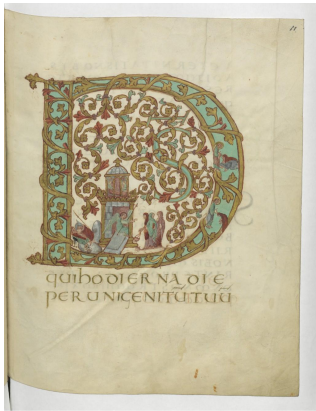 D
QUI HODIERNA DIE
PER UNIGENITŪ TUŪ